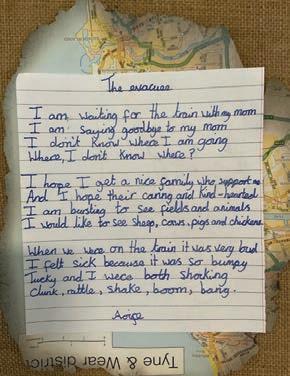 The evacuee
I am waiting for the train with my mom
I am saying goodbye to my mom
I don't know where I am going
Where, I don't know where?
I hope I get a nice family who support me
And I hope their caring and kind-hearted
I am bursting to see fields and animals
I would like to see sheep, cows, pigs and chickens
When we were on the train it was very loud
I felt sick because it was so bumpy
Lucky and I were both shocking
Clunk, rattle, shake, boom, bang.
Tyne & Wear district